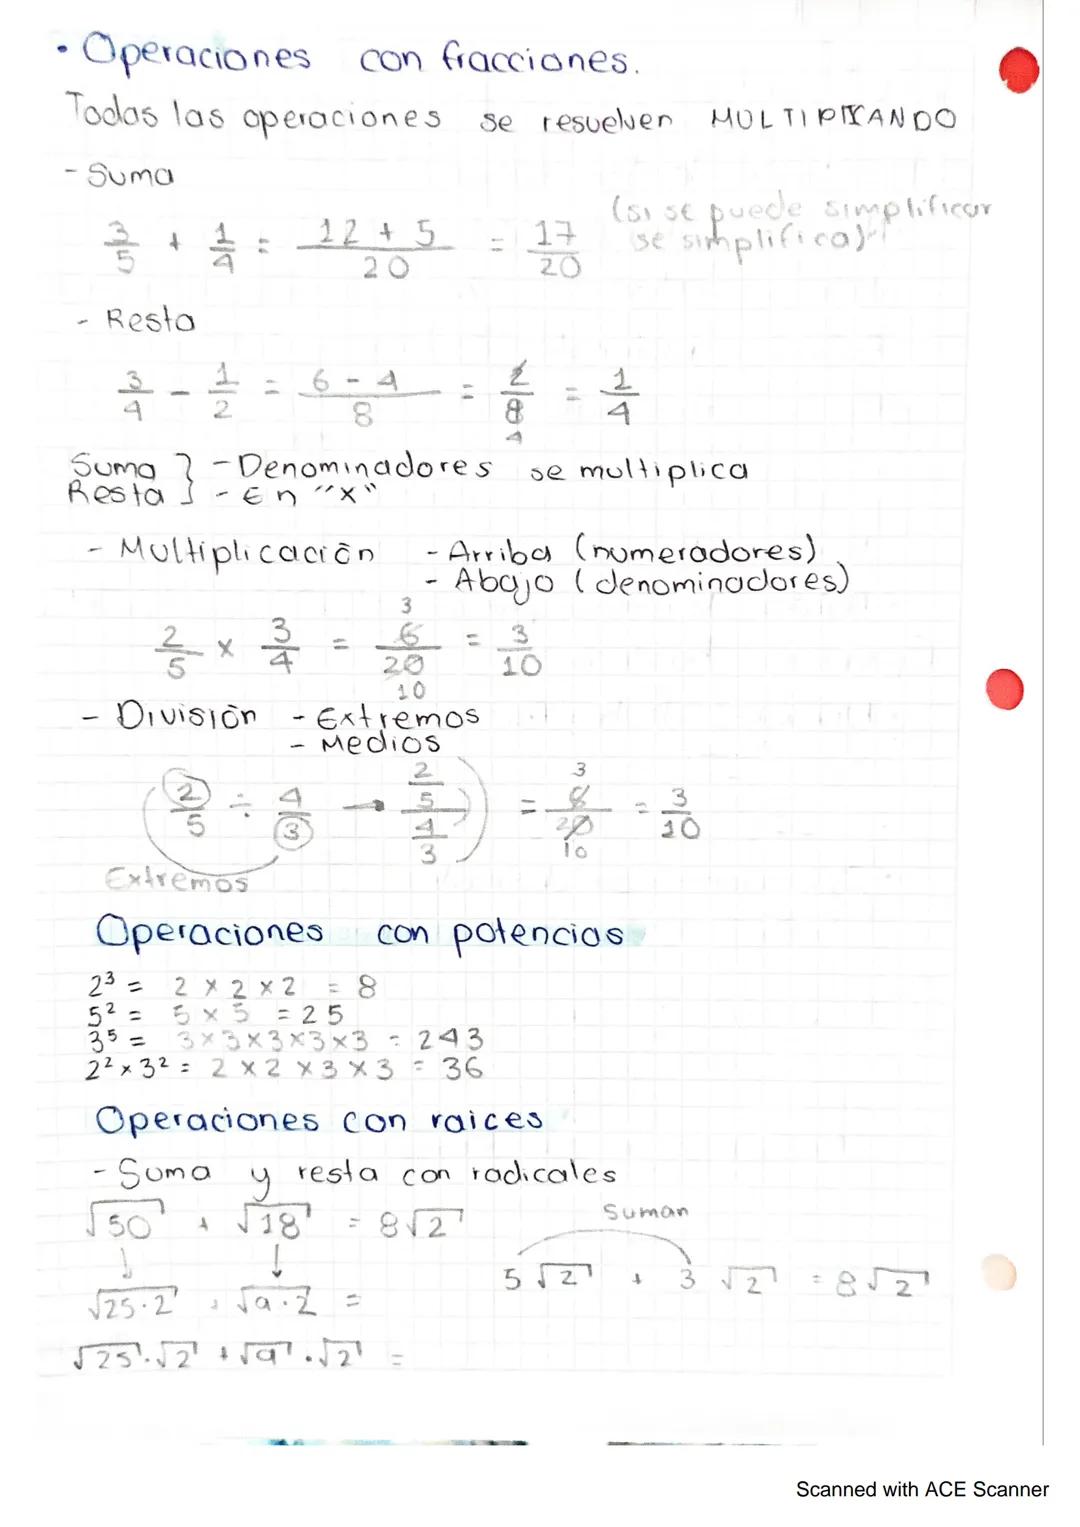 • Operaciones con fracciones.
Todas las operaciones se resuelven MULTIPLICANDO
- Suma
3/5 + 1/4 = 12 + 5 / 20 = 17/20 (si se puede simplificar
se simplifica)
- Resta
3/4 - 1/2 = 6 - 4 / 8 = 2/8 4 = 1/4
Suma } - Denominadores se multiplica
Resta } - En "x"
- Multiplicación - Arriba (numeradores)
- Abajo (denominadores)
2/5 x 3/4 = 3 6/20 10 = 3/10
- División - Extremos
- Medios
2/5 ÷ 4/3 → 2/5 / 4/3 = 3 6/20 10 = 3/10
Extremos
Operaciones con potencias
2³ = 2 x 2 x 2 = 8
5² = 5 x 5 = 25
3⁵ = 3x3x3x3x3 = 243
2² x 3² = 2 x 2 x 3 x 3 = 36
Operaciones con raices
- Suma y resta con radicales
√50 + √18 = 8√2
Suman
5√2 + 3√2 = 8√2
√25·2 + √9·2 =
√25·√2 + √9·√2 =
Scanned with ACE Scanner